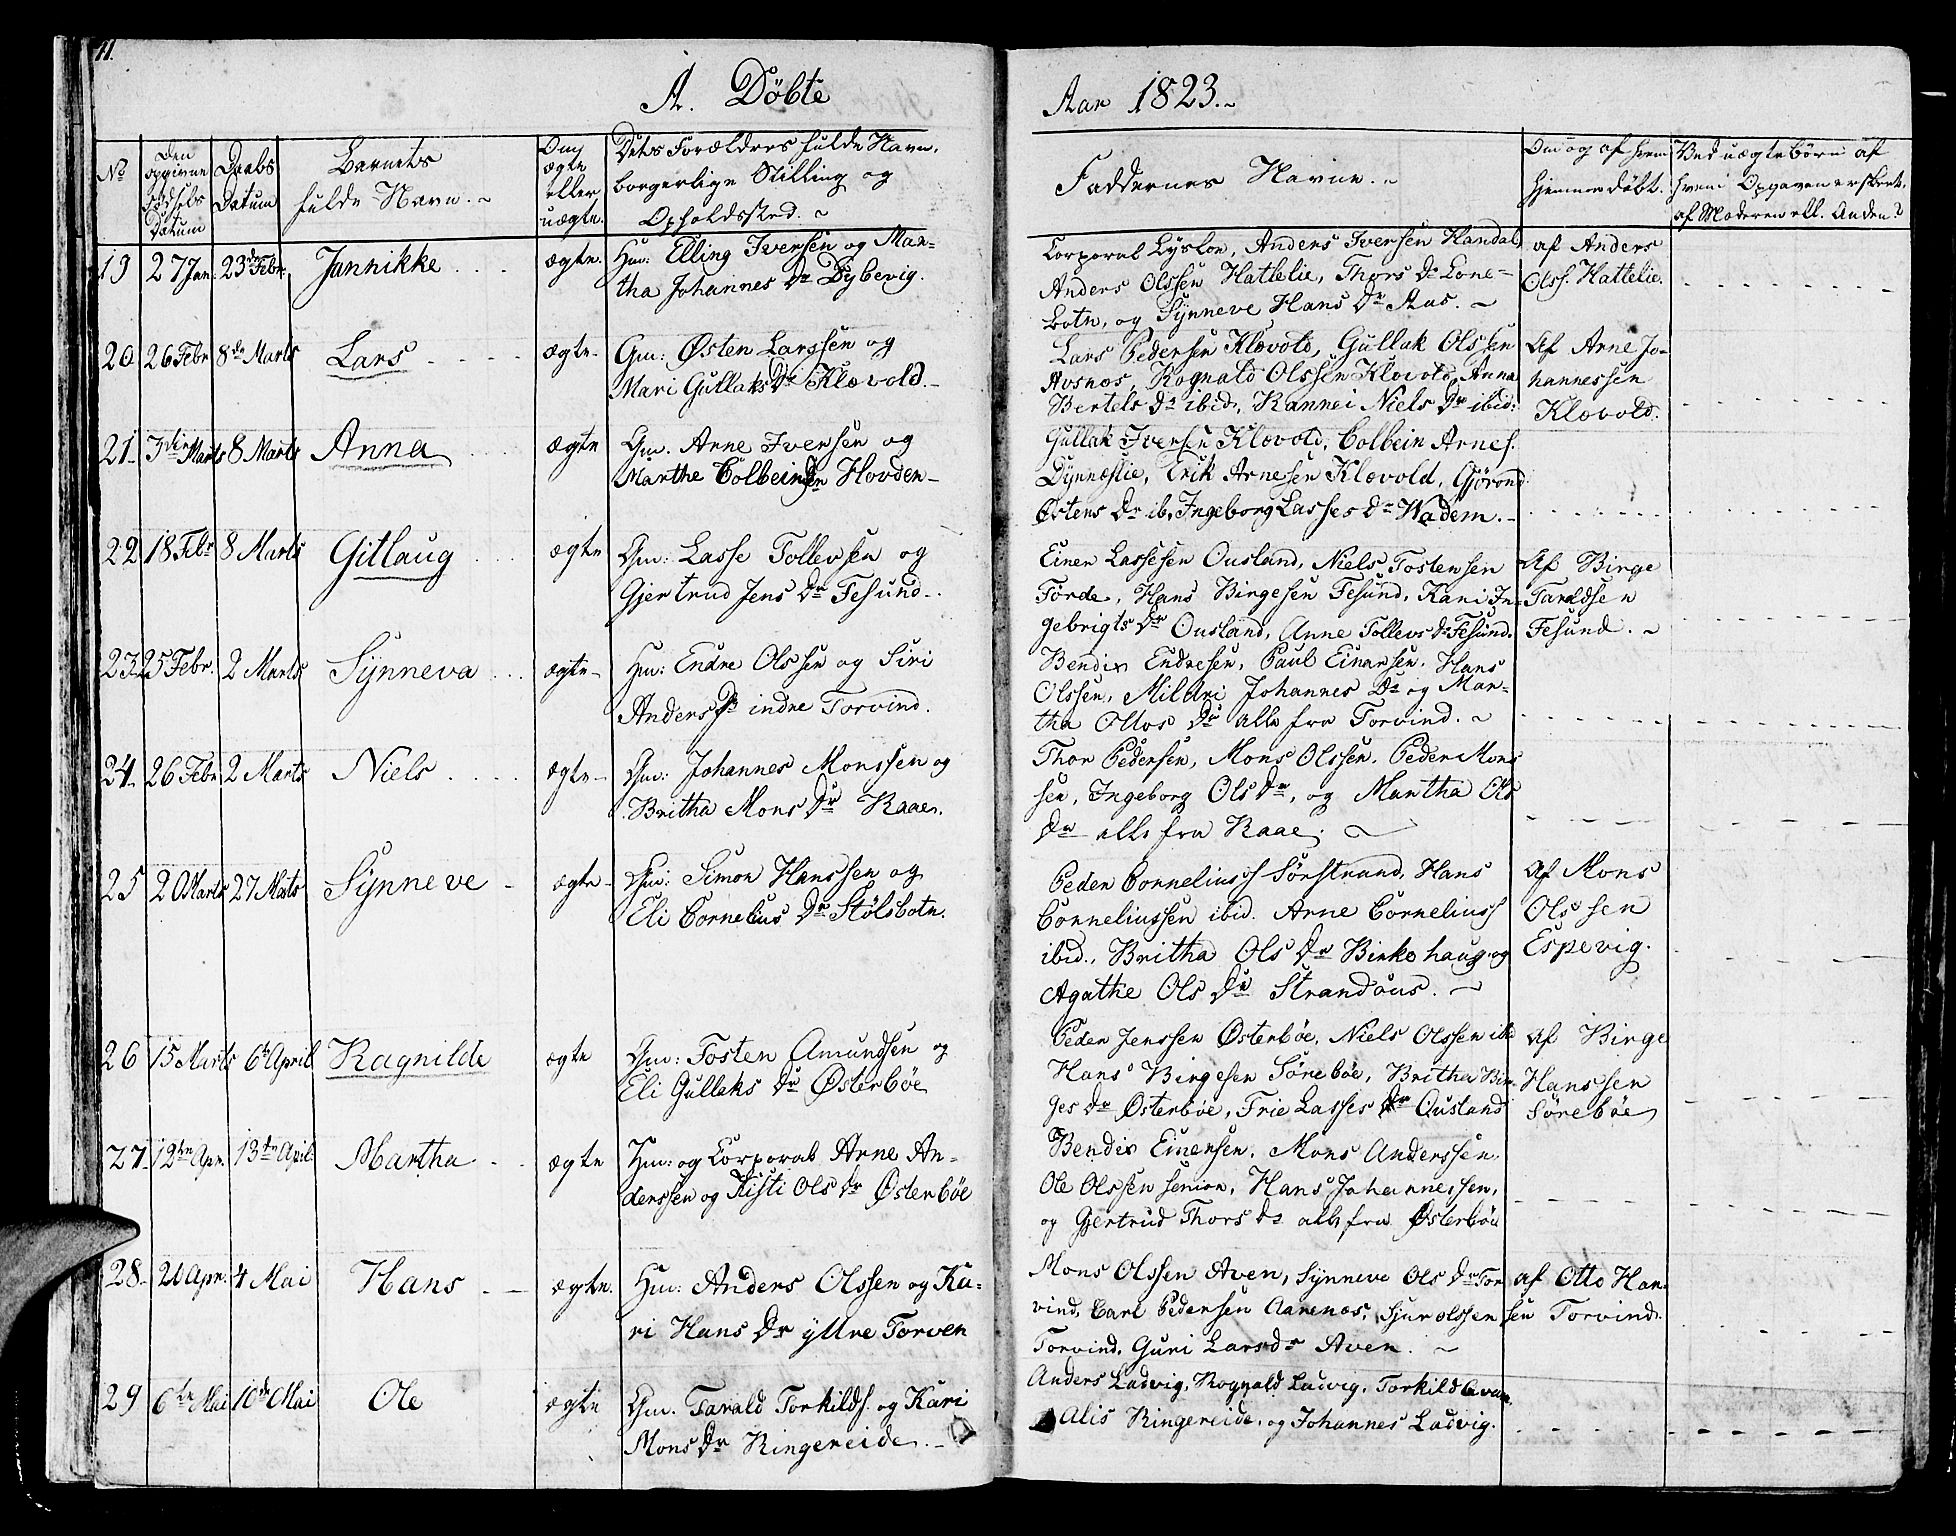 11.
A. Døbte
Aar 1823.
No
Den opgivne Fødsels Datum
Daabs Datum
Barnets fulde Navn.
Om ægte eller uægte.
Dets Forældres fulde Navn, borgerlige Stilling og Opholdssted.
Faddernes Navne.
Om og af hvem hjemmedøbt.
Ved uægte børn af hvem Opgaven er skeet, af Moderen ell. Anden?
19 27 Jan: 23de Febr. Jannikke ægte. Hm: Elling Iversen og Mar-
tha Johannes Dr Dybevig.
Corporal Lyslon, Anders Iversen Handal,
Anders Olssen Hattelie, Thors Dr Lone-
botn, og Synneve Hans Dr Aas.
af Anders
Olss. Hattelie.
20 26 Febr 8de Marts Lars ægte Gm: Østen Larssen og
Mari Gullaks Dr Klævold.
Lars Pedersen Klævold, Gullak Olssen
Avsnæs, Rognald Olssen Klævold, Anna
Bertels Dr ibid, Rannei Niels Dr ibid:
Af Arne Jo-
hannessen
Klævold.
21 3die Marts 8 Marts Anna ægte Gm. Arne Iversen og
Marthe Colbeins Dr Hovden
Gullak Iversen Klævold, Colbein Arnes.
Dÿnnæslie, Erik Arnesen Klævold, Gjørond
Østens Dr ib, Ingeborg Lasses Dr Wadem.
22 18 Febr 8 Marts Gitlaug ægte Gm: Lasse Tollevsen og
Gjertrud Jens Dr Fesund.
Einer Lassesen Ousland, Niels Tostensen
Førde, Hans Birgesen Fesund, Kari In-
gebrigts Dr Ousland, Anne Tollevs Dr Fesund.
Af Birge
Taraldsen
Fesund.
23. 25 Febr. 2 Marts Synneva ægte Hm: Endre Olssen og Siri
Anders Dr indre Torvind.
Bendix Endresen, Paul Einarsen, Hans
Olssen, Mildri Johannes Dr og Mar-
tha Ottos Dr alle fra Torvind.
24. 26 Febr 2 Marts Niels ægte Gm: Johannes Monssen og
Britha Mons Dr Raae.
Thor Pedersen, Mons Olssen, Peder Mons
sen, Ingeborg Ols Dr, og Martha Ols
Dr alle fra Raae.
25 20 Marts 27 Marts Synneve ægte Gm: Simon Hanssen og
Eli Cornelius Dr Stølsbotn.
Peder Corneliuss Sørstrand, Hans
Corneliussen ibid. Arne Corneliuss
ibid., Britha Ols Dr Birkehaug og
Agathe Ols Dr Strandøus.
Af Mons
Olssen
Espevig.
26 15 Marts 6te April Ragnilde ægte Gm: Tosten Amundsen og
Eli Gullaks Dr Østerbøe
Peder Jenssen Østerbøe, Niels Olssen ibd
Hans Birgesen Sørebøe, Britha Bir-
ges Dr Østerbøe, Frie Lasses Dr Ousland
Af Birge
Hanssen
Sørebøe
27 12te Apr. 13te April. Martha ægte Hm: og Corporal Arne An-
derssen og Kisti Ols Dr Østerbøe
Bendix Einersen, Mons Anderssen,
Ole Olssen senior, Hans Johannessen,
og Gjertrud Thors Dr alle fra Østerbøe
28 20 Apr. 4 Mai Hans ægte. Hm: Anders Olssen og Ka-
ri Hans Dr yttre Torven
Mons Olssen Aven, Synneve Ols Dr Tor
vind, Carl Pedersen Aarenæs, Sjur olssen
Torvind, Guri Lars Dr Aven.
af Otto Han
sen Torvind.
29 6te Mai 10de Mai Ole ægte Gm. Tarald Torkilds. og Kari
Mons Dr Ringereide.
Anders Ladvig, Rognald Ladvig, Torkild
Alis Ringereide, og Johannes Ladvig.